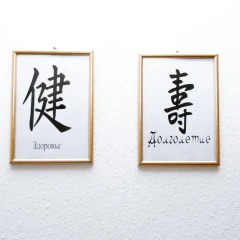 健
Здоровье
壽
Долголетие